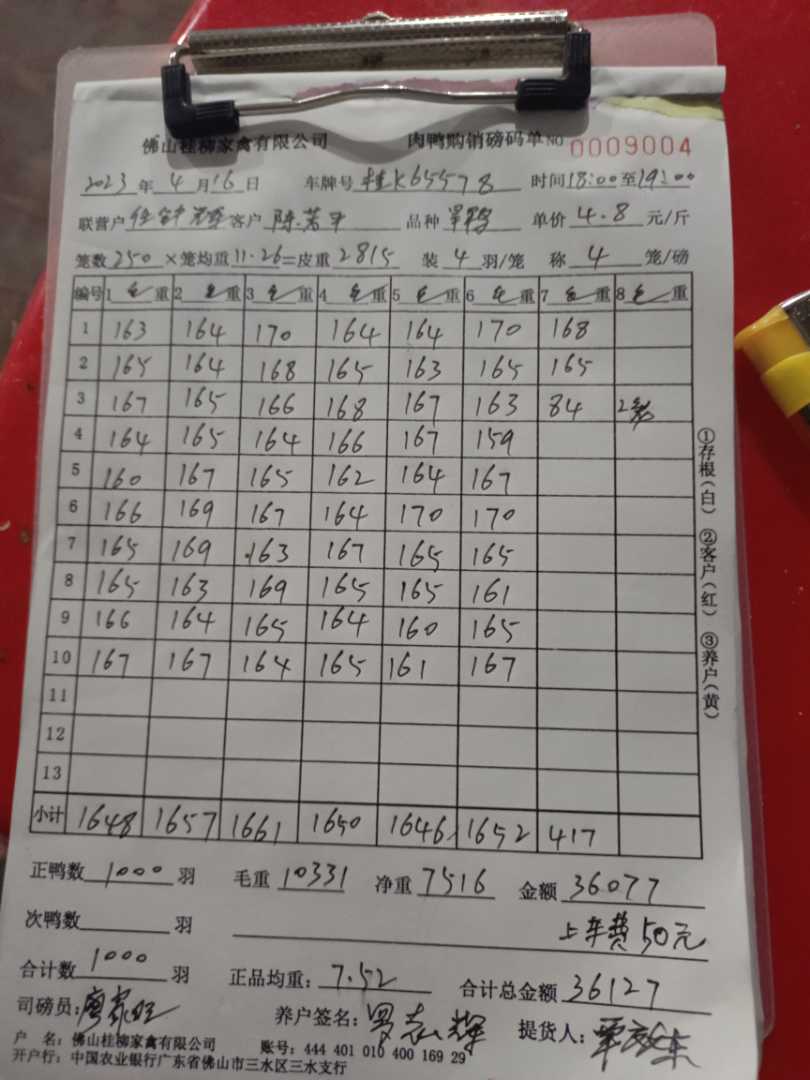 佛山桂柳家禽有限公司 肉鸭购销磅码单 NO 0009004
2023年4月16日 车牌号 桂K65578 时间18:00至19:00
联营户 客户 陈 品种 单价 4.8 元/斤
笼数 250 ×笼均重 11.26 =皮重 2815 装 4 羽/笼 称 4 笼/磅
编号 1 毛重 2 毛重 3 毛重 4 毛重 5 毛重 6 毛重 7 毛重 8 毛重
1 163 164 170 164 164 170 168
2 165 164 168 165 163 165 165
3 167 165 166 168 167 163 84 2笼
4 164 165 164 166 167 159
5 160 167 165 162 164 167
6 166 169 167 164 170 170
7 165 169 163 167 165 165
8 165 163 169 165 165 161
9 166 164 165 164 160 165
10 167 167 164 165 161 167
11
12
13
小计 1648 1657 1661 1650 1646 1652 417
①存根(白) ②客户(红) ③养户(黄)
正鸭数 1000 羽 毛重 10331 净重 7516 金额 36077
次鸭数 羽 上车费50元
合计数 1000 羽 正品均重: 7.52 合计总金额 36127
司磅员: 养户签名: 罗志辉 提货人:
户 名: 佛山桂柳家禽有限公司 账号: 444 401 010 400 169 29
开户行: 中国农业银行广东省佛山市三水区三水支行